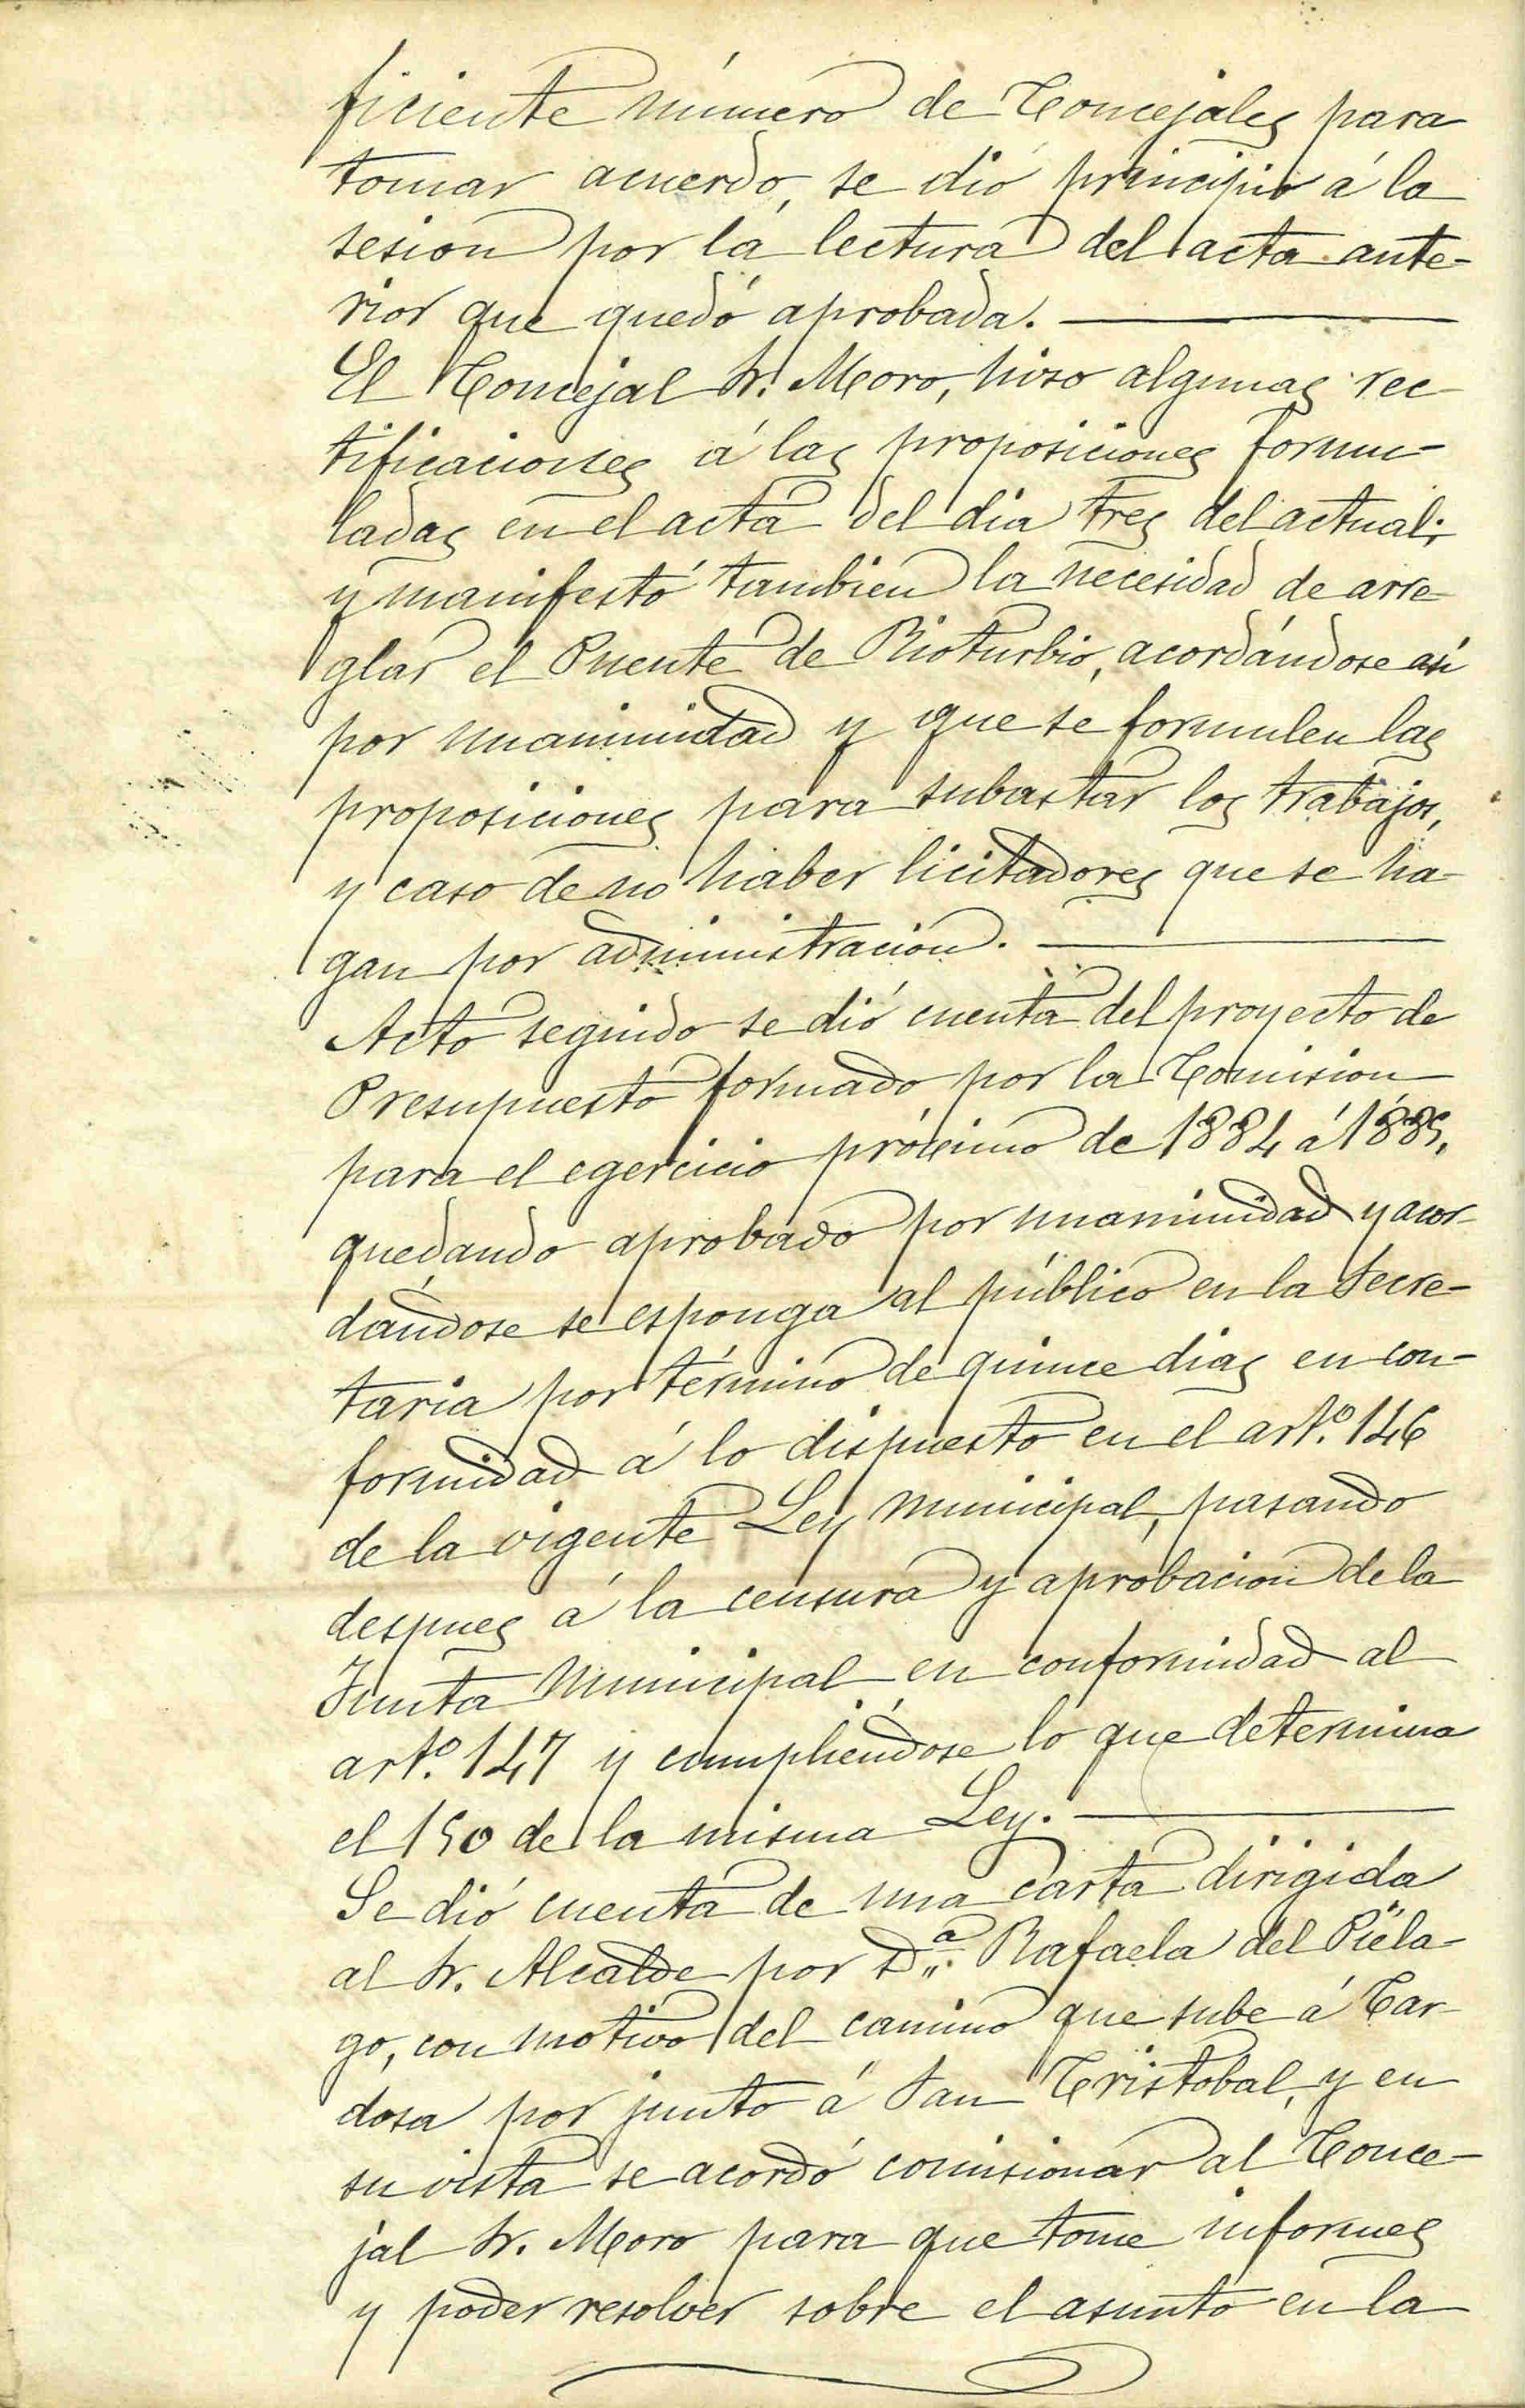 ficiente número de Concejales para
tomar acuerdo, se dió principio á la
sesion por la lectura del acta ante-
rior que quedó aprobada.
El Concejal Sr. Moro, hizo algunas rec-
tificaciones á las proposiciones formu-
ladas en el acta del dia tres del actual;
y manifestó tambien la necesidad de arre-
glar el Puente de Rioturbio, acordándose asi
por unanimidad y que se formulen las
proposiciones para subastar los trabajos,
y caso de no haber licitadores que se ha-
gan por administracion.
Acto seguido se dió cuenta del proyecto de
Presupuesto formado por la Comision
para el egercicio próximo de 1884 á 1885,
quedando aprobado por unanimidad y acor-
dándose se esponga al público en la Secre-
taria por término de quince dias en con-
formidad á lo dispuesto en el artº. 146
de la vigente Ley Municipal, pasando
despues á la censura y aprobacion de la
Junta Municipal en conformidad al
artº. 147 y cumpliéndose lo que determina
el 150 de la misma Ley.
Se dió cuenta de una carta dirigida
al Sr. Alcalde por Dª. Rafaela del Piéla-
go, con motivo del camino que sube á Car-
dosa por junto á San Cristobal, y en
su vista se acordó comisionar al Conce-
jal Sr. Moro para que tome informes
y poder resolver sobre el asunto en la